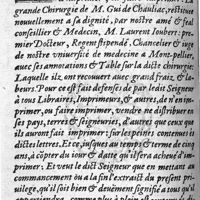 grande Chirurgie de M. Gui de Chauliac, restituee
nouuellement a sa dignité, par nostre amé & feal
conseillier & Medecin, M. Laurent Ioubert: pre-
mier Docteur, Regent stipendé, Chancelier & iuge
de nostre vniuersité de medecine a Mont-pellier,
auec ses annotations & Table sur la dicte chirurgie
Laquelle ilz ont recouuert auec grand frais, & la-
beurs. Pour ce est fait defenses de par ledit Seigneur
a tous Libraires, Imprimeurs, & autres, de n'en im-
primer, ou faire imprimer, vendre ne distribuer en
ses pays, terres, & seigneuries, d'autres que ceux qu'
ils auront fait imprimer: sur les peines contenues es
dictes lettres. Et ce, iusques au temps & terme de cinq
ans, a côpter du iour & datte qu'ils serôt acheué d'im-
primer. Et veut le dict Seigneur que en mettant au
commancement ou a la fin l'extraict du present pri-
uilege, qu'il soit tenu & deuëment signifié a tous qu'il